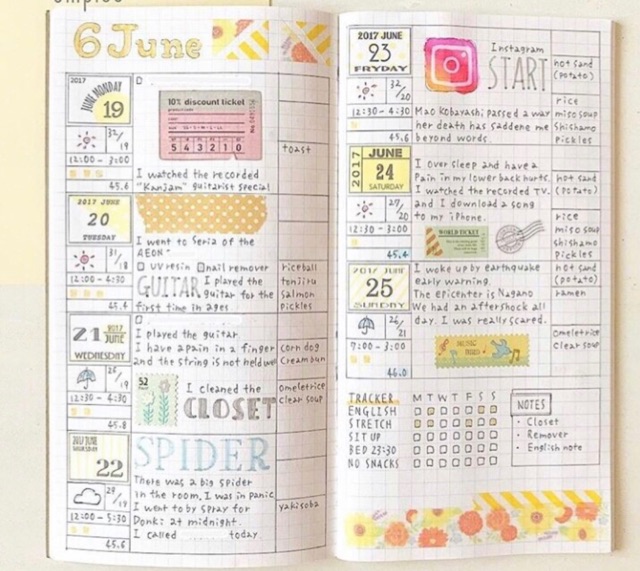 6 June
2017
JUNE MONDAY
19
32/19
12:00 - 3:00
45.6
10% discount ticket
5 4 3 2 1 0
I watched the recorded
"Kanjam" guitarist special
toast
2017 JUNE
20
TUESDAY
31/18
12:00 - 4:30
45.4
I went to Seria of the
AEON.
UV resin nail remover
GUITAR I played the
guitar for the
first time in ages
riceball
tonjiru
salmon
pickles
21 2017 JUNE
WEDNESDAY
12:30 - 4:30
45.8
I played the guitar
I have a pain in a finger
and the string is not held well
52
I cleaned the
CLOSET
corn dog
Cream bun
omeletrice
clear soup
22
12:00 - 5:30
45.6
SPIDER
There was a big spider
in the room, I was in panic
I went to by spray for
Donki at midnight.
I called today
yakisoba
2017 JUNE
23
FRYDAY
32/20
12:30 - 4:30
45.6
Instagram
START
Mao Kobayashi passed a way
her death has saddene me
beyond words.
hot sand
(potato)
rice
miso soup
Shishamo
pickles
2017
JUNE
24
SATURDAY
27/20
12:30 - 3:00
45.4
I over sleep and have a
Pain in my lower back hurts.
I watched the recorded TV.
and I download a song
to my iPhone.
WORLD TICKET
hot sand
(potato)
rice
miso soup
shishamo
pickles
2017 JUNE
25
SUNDAY
26/21
9:00 - 3:00
46.0
I woke up by earthquake
early warning.
The epicenter is Nagano
We had an aftershock all
day. I was really scared.
MUSIC
hot sand
(potato)
ramen
omeletrice
clear soup
TRACKER M T W T F S S
ENGLISH
STRETCH
SIT UP
BED 23:30
NO SNACKS
NOTES
· Closet
· Remover
· English note